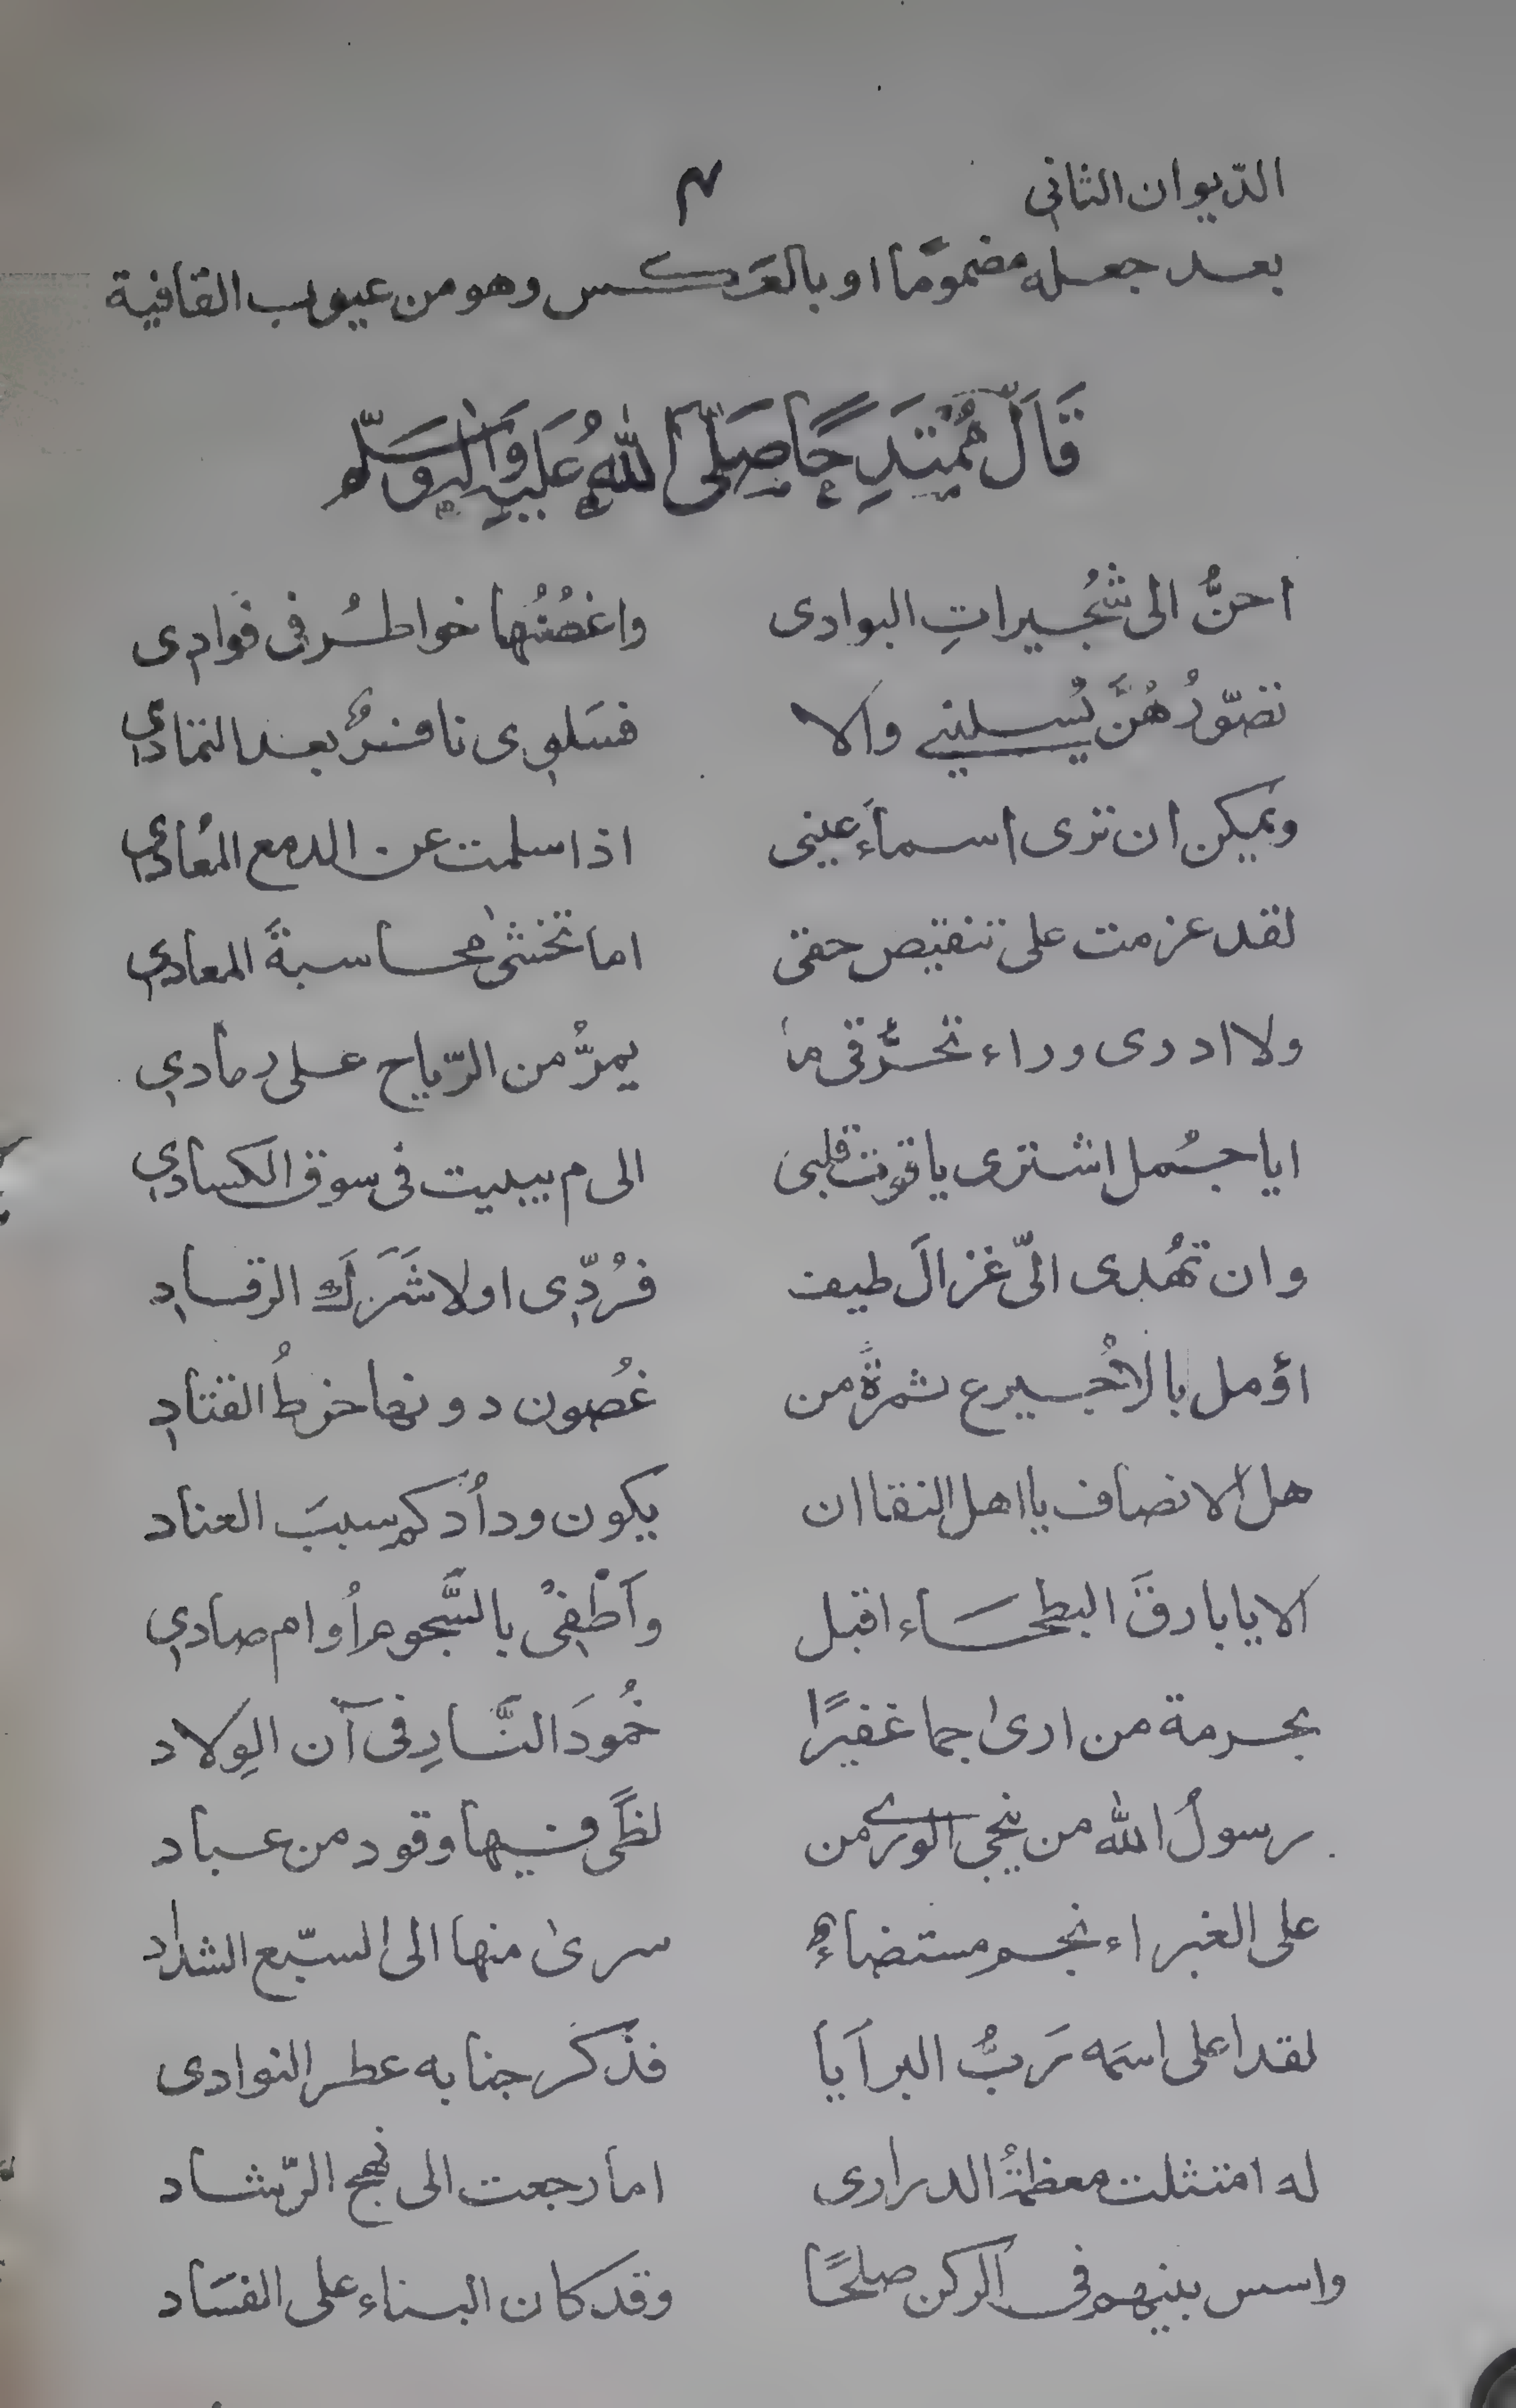 الدّيوان الثاني
٣
بعد جعله مضمومًا او بالعكس وهو من عيوب القافية
قَالَ مُمْتَدِحًا صَلَّى اللّٰهُ عَلَيْهِ وَاٰلِهٖ وَسَلَّم
احنُّ الى شُجيراتِ البوادى واغصُنُها خواطرُ فى فوادى
تصوّرُهُنَّ يُسلينى والا فسَلوِى نافدٌ بعد التمادِي
ويمكن ان ترى اسماءَ عينى اذا سلمت عن الدمع المُعادِي
لقد عزمت على تنقيص حقى اما تخشىٰ محاسبةَ المعادِي
ولا ادرى وراء تحرُّقى ما يمرُّ من الرّياح على رمادِي
ايا جُمل اشترى ياقوت قلبى الى م يبيت فى سوق الكسادِي
وان تهُدى الىّ غزالَ طيف فرُدِّى اولا شَرَكَ الرقادِ
اؤمل بالاُجيرع ثمرةً من غُصون دونها خرطُ القتادِ
هل الانصاف يا اهل النقا ان يكون ودادُكم سببَ العناد
الا يا بارقَ البطحَاء اقبل وَاَطْفِىْ بالسَّجوم اُوام صادِي
بحرمة من ارىٰ جما غفيرًا خُمودَ النَّارِ فى آن الوِلاد
رسولُ الله من ينجى الورى من لظًى فيها وقود من عباد
على الغبراء نجم مستضاءٌ سرىٰ منها الى السبّع الشداد
لقد اعلى اسمَه رَبُّ البرايا فذكر جنابه عطر النوادى
له امتثلت معظمةُ الدرارى اما رجعت الى نهج الرّشاد
واسس بينهم فى الركن صلحًا وقد كان البناء على الفسَاد